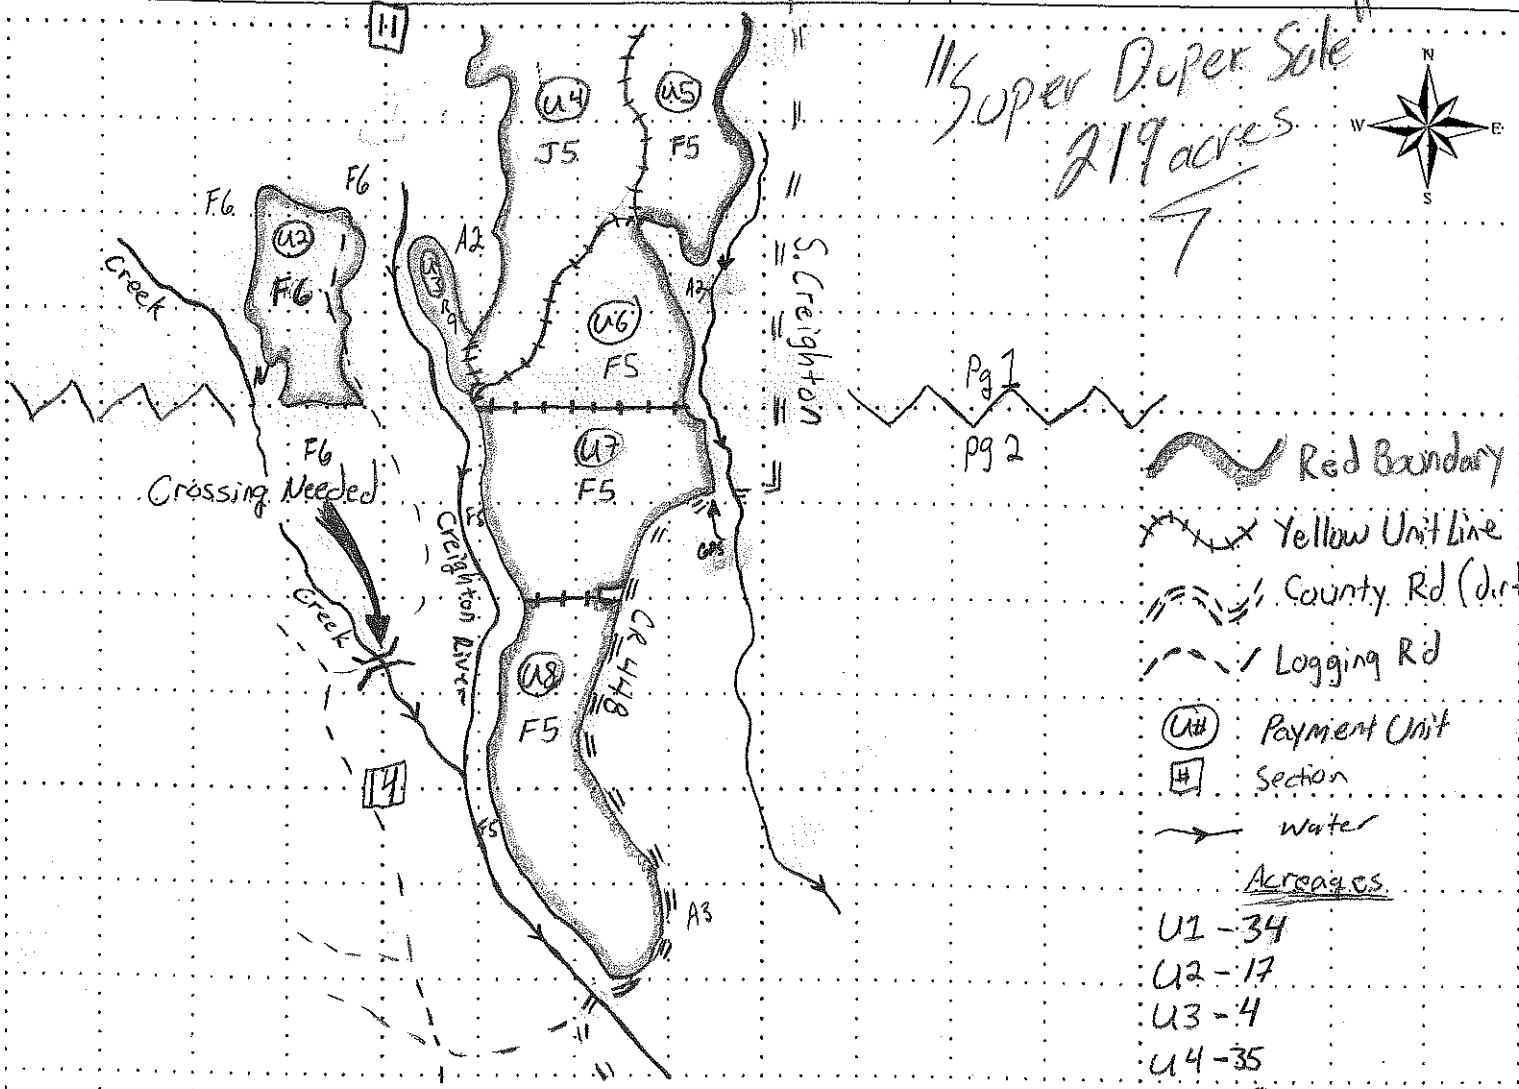 11
"Super Duper Sale"
219 acres
N
W E
S
U4
J5
U5
F5
F6
F6
U2
F6
A2
U3
R9
Creek
A2
S. Creighton
U6
F5
Pg 1
Pg 2
U7
F5
F6
Crossing Needed
F5
Creighton River
GPS
Creek
CR 448
U8
F5
14
F5
A3
Red Boundary
Yellow Unit Line
County Rd (dirt
Logging Rd
U# Payment Unit
# Section
Water
Acreages
U1 - 34
U2 - 17
U3 - 4
U4 - 35